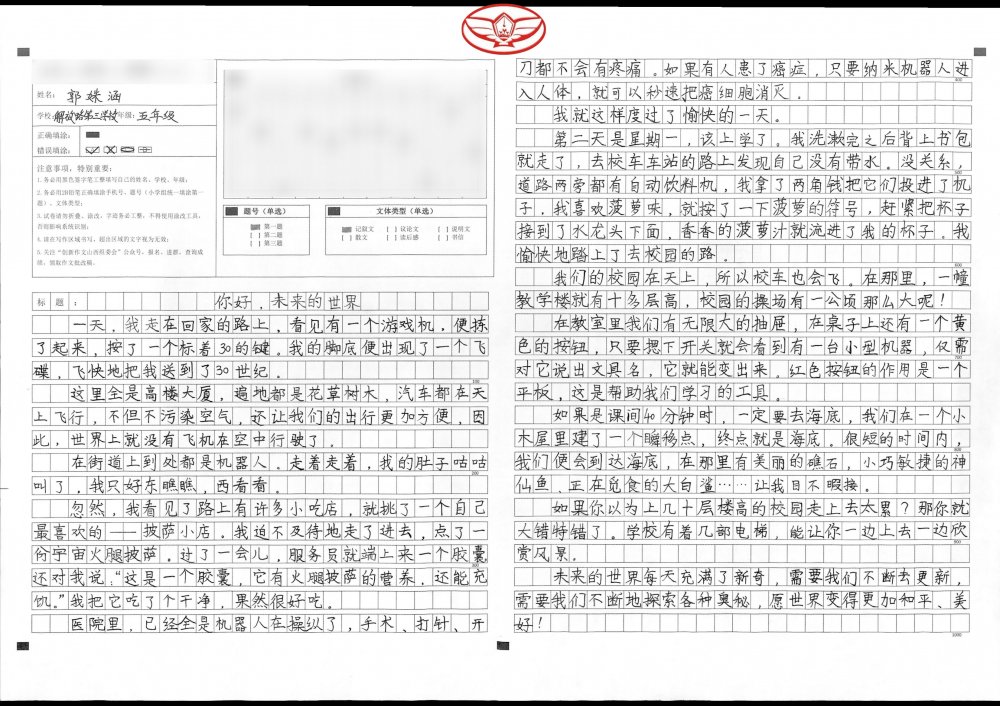 姓名：郭姝涵
学校：解放路第三学校 年级：五年级
正确填涂：
错误填涂：
注意事项，特别重要：
1.务必用黑色签字笔工整填写自己的姓名、学校、年级；
2.务必用2B铅笔正确填涂手机号、题号（小学组统一填涂第一
题）、文体类型；
3.试卷请勿折叠、涂改，字迹务必工整，不得使用涂改工具，
否则影响系统识别；
4.请在写作区域书写，超出区域的文字视为无效；
5.关注“创新作文山西组委会”公众号，报名、进群、查询成
绩、领取作文批改稿。
题号（单选）
第一题
[ ] 第二题
[ ] 第三题
文体类型（单选）
记叙文 [ ] 议论文 [ ] 说明文
[ ] 散文 [ ] 读后感 [ ] 书信
标 题：你好，未来的世界
一天，我走在回家的路上，看见有一个游戏机，便拣
了起来，按了一个标着30的键。我的脚底便出现了一个飞
碟，飞快地把我送到了30世纪。
100
这里全是高楼大厦，遍地都是花草树木，汽车都在天
上飞行，不但不污染空气，还让我们的出行更加方便，因
此，世界上就没有飞机在空中行驶了。
在街道上到处都是机器人。走着走着，我的肚子咕咕
200
叫了，我只好东瞧瞧，西看看。
忽然，我看见了路上有许多小吃店，就挑了一个自己
最喜欢的——披萨小店。我迫不及待地走了进去，点了一
份宇宙火腿披萨。过了一会儿，服务员就端上来一个胶囊
300
还对我说，“这是一个胶囊，它有火腿披萨的营养，还能充
饥。”我把它吃了个干净，果然很好吃。
医院里，已经全是机器人在操纵了，手术、打针、开
刀都不会有疼痛。如果有人患了癌症，只要纳米机器人进
400
入人体，就可以秒速把癌细胞消灭。
我就这样度过了愉快的一天。
第二天是星期一，该上学了。我洗漱完之后背上书包
就走了，去校车车站的路上发现自己没有带水。没关系，
500
道路两旁都有自动饮料机，我拿了两角钱把它们投进了机
子，我喜欢菠萝味，就按了一下菠萝的符号，赶紧把杯子
接到了水龙头下面，香香的菠萝汁就流进了我的杯子。我
愉快地踏上了去校园的路。
600
我们的校园在天上，所以校车也会飞。在那里，一幢
教学楼就有十多层高，校园的操场有一公顷那么大呢！
在教室里我们有无限大的抽屉，在桌子上还有一个黄
色的按钮，只要摁下开关就会看到有一台小型机器，仅需
700
对它说出文具名，它就能变出来。红色按钮的作用是一个
平板，这是帮助我们学习的工具。
如果是课间40分钟时，一定要去海底，我们在一个小
木屋里建了一个瞬移点，终点就是海底。很短的时间内，
800
我们便会到达海底，在那里有美丽的礁石，小巧敏捷的神
仙鱼、正在觅食的大白鲨……让我目不暇接。
如果你以为上几十层楼高的校园走上去太累？那你就
大错特错了。学校有着几部电梯，能让你一边上去一边欣
900
赏风景。
未来的世界每天充满了新奇，需要我们不断去更新，
需要我们不断地探索各种奥秘，愿世界变得更加和平、美
好！
1000